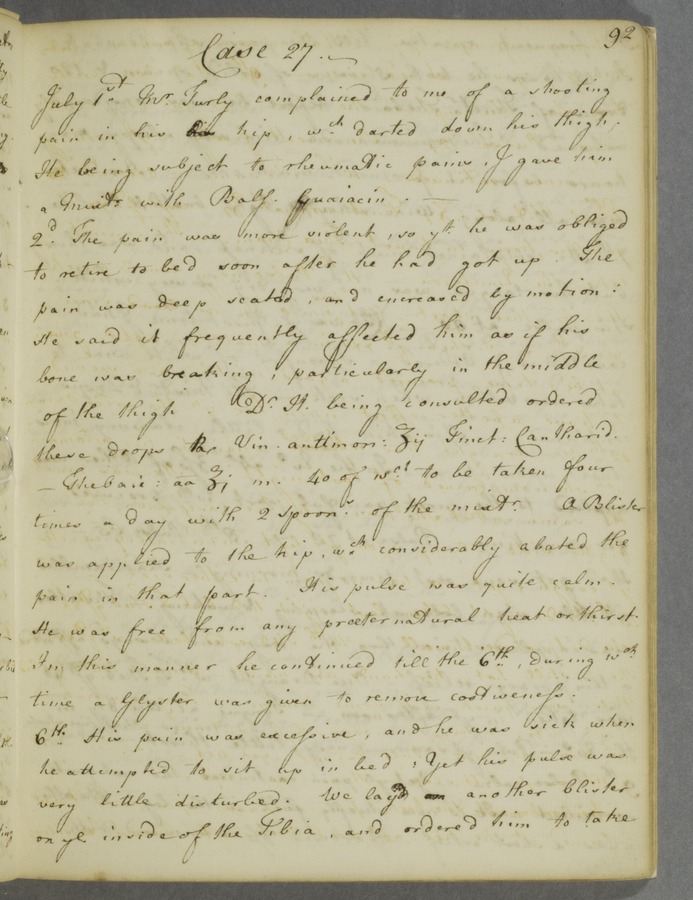 92
Case 27.
July 1st Mr. Turly complained to me of a shooting
pain in his hip, wch darted down his thigh,
He being subject to rheumatic pains, I gave him
a Mixtr. with Balf. Guaiacin. —
2d. The pain was more violent, so yt he was obliged
to retire to bed soon after he had got up. The
pain was deep seated, and encreased by motion:
He said it frequently affected him as if his
bone was breaking, particularly in the middle
of the thigh. Dr. H. being consulted ordered
these drops Vin. antimon: ʒij Tinct: Cantharid.
— Thebaic: aa ʒj m. 40 of wch to be taken four
times a day with 2 spoons. of the mixtr. A Blister
was applied to the hip, wch considerably abated the
pain in that part. His pulse was quite calm.
He was free from any præternatural heat or thirst.
In this manner he continued till the 6th, during wch
time a Glyster was given to remove costiveness.
6th. His pain was excessive, and he was sick when
he attempted to sit up in bed; Yet his pulse was
very little disturbed. We layd another blister
on ye inside of the Tibia, and ordered him to take